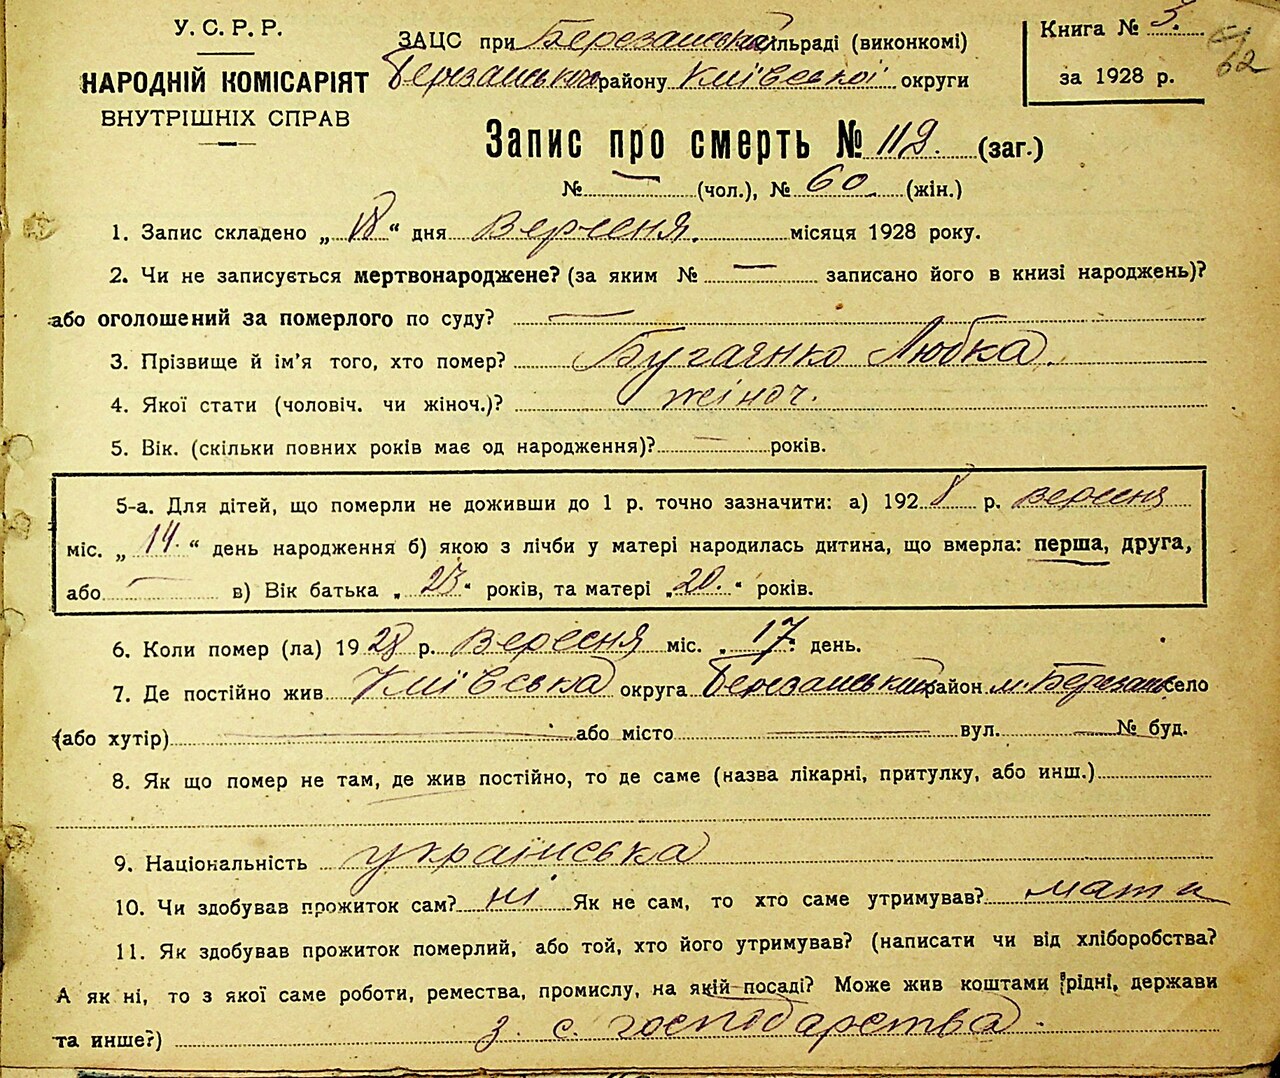 У. С. Р. Р.
НАРОДНІЙ КОМІСАРІЯТ
ВНУТРІШНІХ СПРАВ
ЗАЦС при Березанській сільраді (виконкомі)
Березанського району Київської округи
Книга № 3.
за 1928 р.
62
Запис про смерть № 119. (заг.)
№ — (чол.), № 60 (жін.)
1. Запис складено „ 18 “ дня Вересня. місяця 1928 року.
2. Чи не записується мертвонароджене? (за яким № — записано його в книзі народжень)?
або оголошений за померлого по суду? —
3. Прізвище й ім'я того, хто помер? Бугаянко Любка.
4. Якої стати (чоловіч. чи жіноч.)? жіноч.
5. Вік. (скільки повних років має од народження)? — років.
5-а. Для дітей, що померли не доживши до 1 р. точно зазначити: а) 1928 р. вересня
міс. „ 14. “ день народження б) якою з лічби у матері народилась дитина, що вмерла: перша, друга,
або — в) Вік батька „ 23 “ років, та матері „ 20. “ років.
6. Коли помер (ла) 1928 р. Вересня міс. „ 17 “ день.
7. Де постійно жив Київська округа Березанський район м. Березань село
(або хутір) — або місто — вул. — № буд.
8. Як що помер не там, де жив постійно, то де саме (назва лікарні, притулку, або инш.)
9. Національність українська
10. Чи здобував прожиток сам? ні Як не сам, то хто саме утримував? мати
11. Як здобував прожиток померлий, або той, хто його утримував? (написати чи від хліборобства?
А як ні, то з якої саме роботи, ремества, промислу, на якій посаді? Може жив коштами рідні, держави
та инше?) з с. господарства.